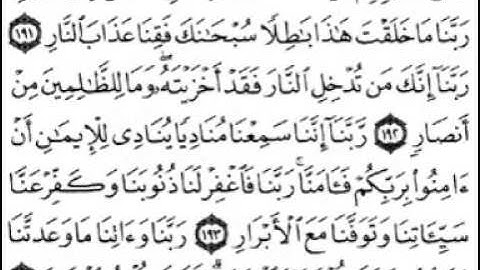 رَبَّنَا مَا خَلَقْتَ هَٰذَا بَٰطِلًا سُبْحَٰنَكَ فَقِنَا عَذَابَ ٱلنَّارِ ١٩١
رَبَّنَآ إِنَّكَ مَن تُدْخِلِ ٱلنَّارَ فَقَدْ أَخْزَيْتَهُۥ ۖ وَمَا لِلظَّٰلِمِينَ مِنْ
أَنصَارٍ ١٩٢ رَّبَّنَآ إِنَّنَا سَمِعْنَا مُنَادِيًا يُنَادِى لِلْإِيمَٰنِ أَنْ
ءَامِنُوا۟ بِرَبِّكُمْ فَـَٔامَنَّا ۚ رَبَّنَا فَٱغْفِرْ لَنَا ذُنُوبَنَا وَكَفِّرْ عَنَّا
سَيِّـَٔاتِنَا وَتَوَفَّنَا مَعَ ٱلْأَبْرَارِ ١٩٣ رَبَّنَا وَءَاتِنَا مَا وَعَدتَّنَا